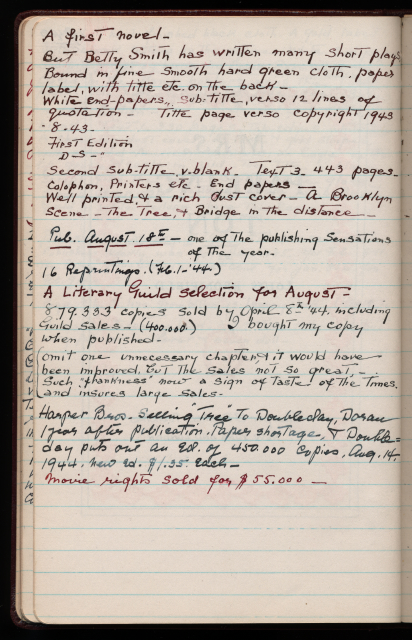 A first novel -
But Betty Smith has written many short plays.
Bound in fine smooth hard green cloth, paper
label, with title etc. on the back -
White end-papers, Sub-title, verso 12 lines of
quotation - Title page verso copyright 1943
"8-43-
First Edition
D-S-"
Second sub-title, v. blank - Text 3 - 443 pages -
Colophon, Printers etc - End papers -
Well printed, & a rich Dust cover - A Brooklyn
Scene - The Tree, & Bridge in the distance -
Pub. August 18th - one of the publishing sensations
of the year -
16 Reprintings. (Feb. 1 - '44)
A Literary Guild Selection for August -
879.333 copies sold by April 8th '44, including
Guild sales - (400.000) I bought my copy
when published -
(Omit one unnecessary chapter & it would have
been improved, but the sales not so great, -
Such "frankness" now a sign of taste of the Times,
and insures large sales -
Harper Bros. Selling "Tree" to Doubleday, Doran
1 year after publication. Paper shortage, & Double-
day puts out an Ed. of 450.000 copies, Aug. 14,
1944. New Ed. $1.35 each -
Movie rights sold for $55.000 -